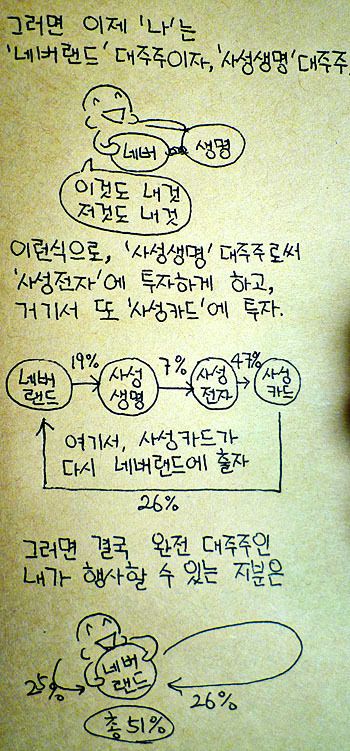 그러면 이제 '나'는
'네버랜드' 대주주이자, '사성생명' 대주주.
네버
생명
이것도 내것
저것도 내것
이런식으로, '사성생명' 대주주로써
'사성전자'에 투자하게 하고,
거기서 또 '사성카드'에 투자.
19% 7% 47%
네버랜드 사성생명 사성전자 사성카드
여기서, 사성카드가
다시 네버랜드에 출자
26%
그러면 결국 완전 대주주인
내가 행사할 수 있는 지분은
네버랜드
25% 26%
총 51%